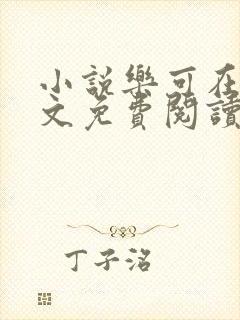 小說樂可在
文免費閱讀
丁子洺